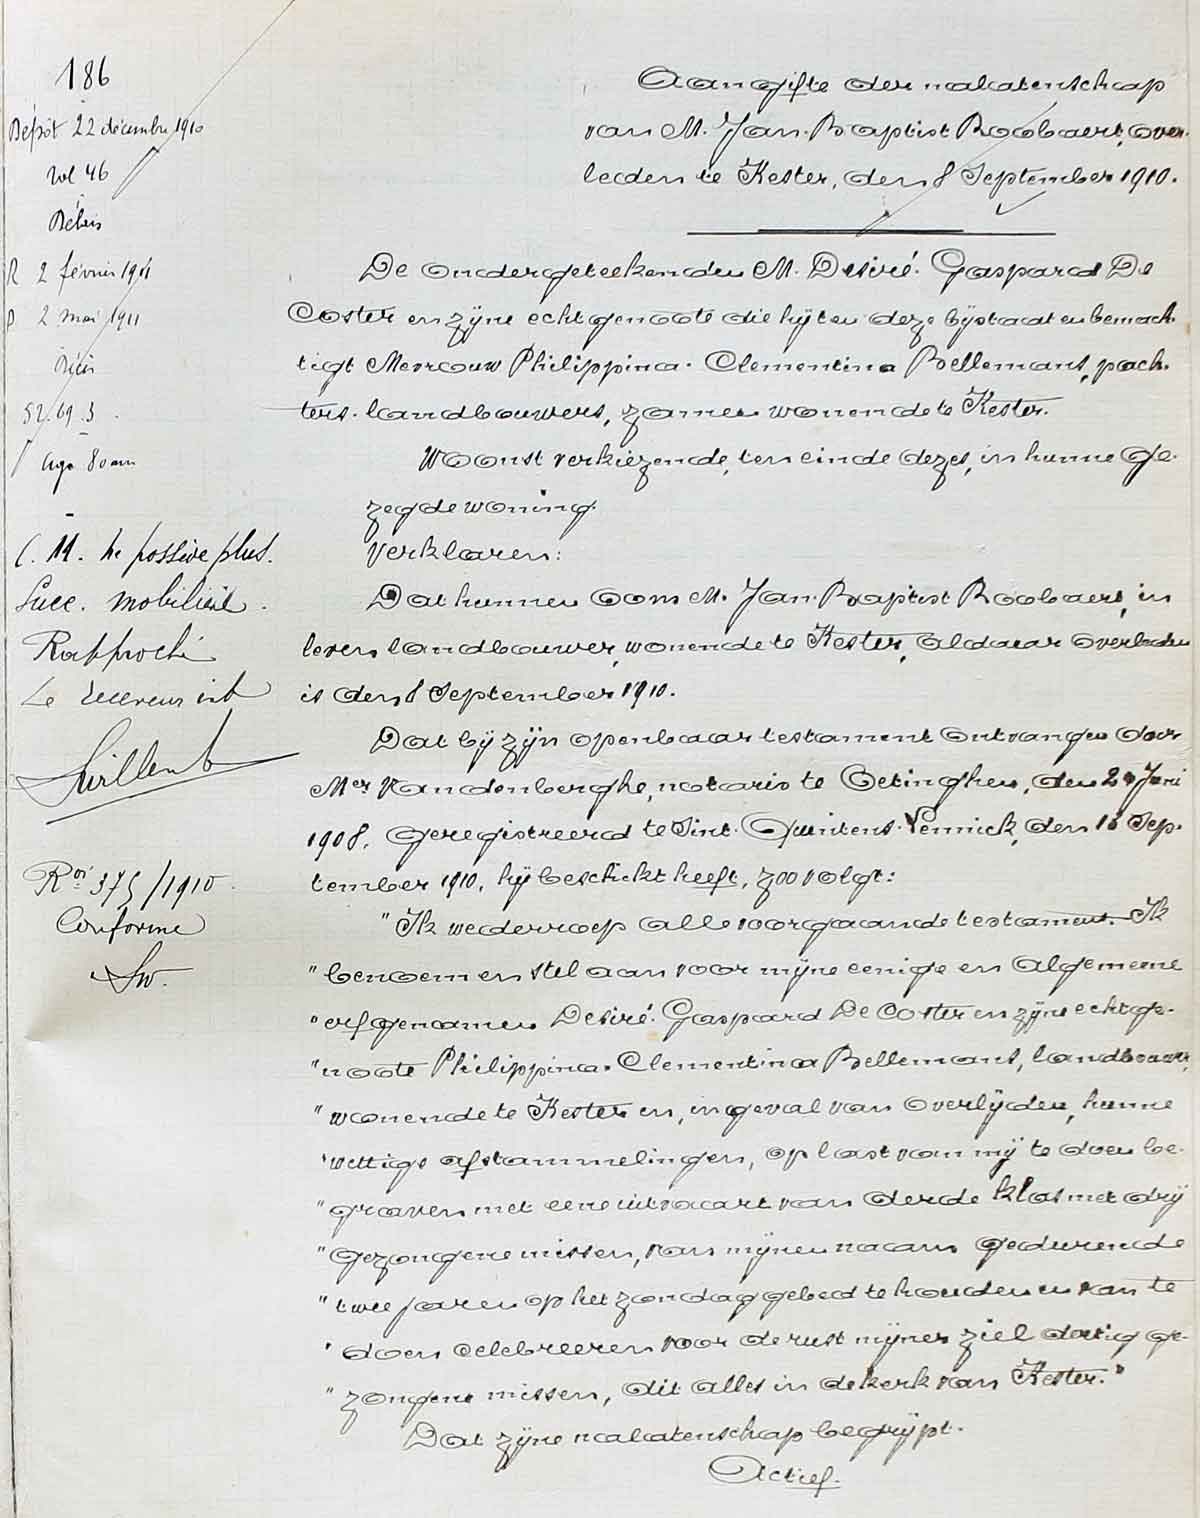 186
Dépôt 22 décembre 1910
Vol 46
Délais
R 2 février 1911
P 2 mai 1911
Décès
52.69.3.
Age 80 ans
C. 11. ne possède plus.
Succ. mobilière.
Rapproché
Le receveur int
Ron 375/1910.
Conforme
Aangifte der nalatenschap
van M. Jan-Baptist Roobaert, over-
leden te Kester, den 8 September 1910.
De ondergeteekenden M. Desiré-Gaspard De
Coster en zijne echtgenoote die hij ten deze bijstaat en bemach-
tigt Mevrouw Philippina-Clementina Bellemans, pach-
ters-landbouwers, zamen wonende te Kester.
Woonst verkiezende, ten einde dezes, in hunne ge-
zegde woning.
Verklaren:
Dat hunnen oom M. Jan-Baptist Roobaert, in
leven landbouwer, wonende te Kester, aldaar overleden
is den 8 September 1910.
Dat bij zijn openbaar testament ontvangen door
Mer Vandenberghe, notaris te Oetinghen, den 2 Juni
1908, geregistreerd te Sint-Quintens-Lennick, den 16 Sep-
tember 1910, hij beschikt heeft, zoo volgt:
"Ik wederroep alle voorgaande testament. Ik
"benoem en stel aan voor mijne eenige en algemeene
"erfgenamen Desiré-Gaspard De Coster en zijne echtge-
"noote Philippina-Clementina Bellemans, landbouwers,
"wonende te Kester en, in geval van overlijden, hunne
"wettige afstammelingen, op last van mij te doen be-
"graven met eene uitvaart van derde klas met drij
"gezongene missen, van mijnen naam gedurende
"twee jaren op het zondaggebed te houden en van te
"doen celebreeren voor de rust mijner ziel dertig ge-
"zongene missen, dit alles in de kerk van Kester."
Dat zijne nalatenschap begrijpt.
Actief.